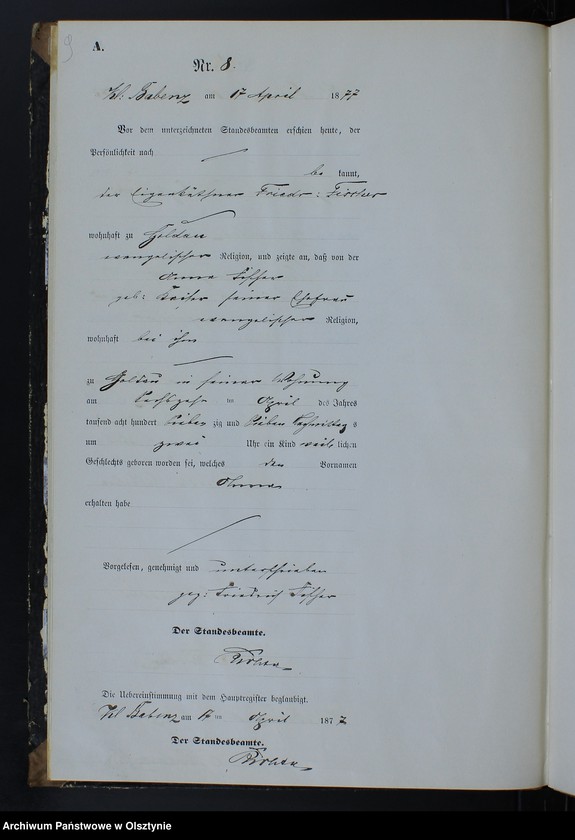 9
A.
Nr. 8.
Kl. Babenz am 17 April 1877
Vor dem unterzeichneten Standesbeamten erschien heute, der
Persönlichkeit nach
be kannt,
der Eigenkäthner Friedr: Fischer
wohnhaft zu Goldau
evangelischer Religion, und zeigte an, daß von der
Anna Fischer
geb: Kaiser seiner Ehefrau
evangelischer Religion,
wohnhaft bei ihm
zu Goldau in seiner Wohnung
am sechszehn ten April des Jahres
tausend acht hundert sieben zig und sieben Nachmittag s
um zwei Uhr ein Kind weib lichen
Geschlechts geboren worden sei, welches den Vornamen
Anna
erhalten habe
Vorgelesen, genehmigt und unterschrieben
gez: Friedrich Fischer
Der Standesbeamte.
Die Uebereinstimmung mit dem Hauptregister beglaubigt.
Kl Babenz am 17 ten April 1877
Der Standesbeamte.
Archiwum Państwowe w Olsztynie